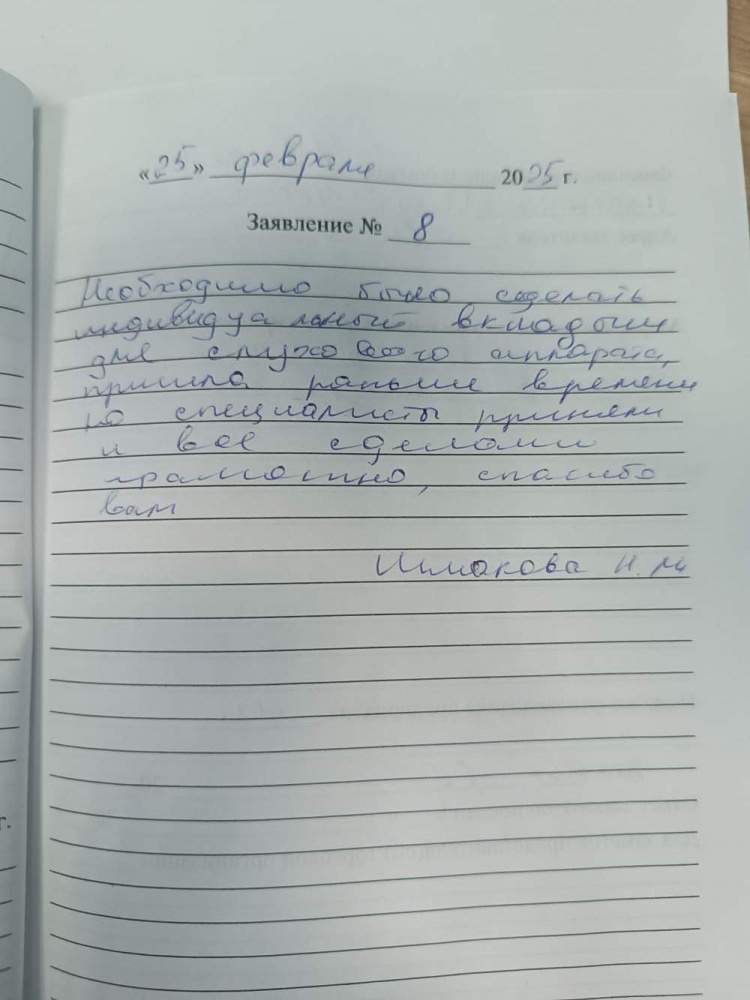 «25» февраля 2025 г.
Заявление № 8
Необходимо было сделать
индивидуальный вкладыш
для слухового аппарата,
пришла раньше времени
но специалисты приняли
и все сделали
грамотно, спасибо
вам
Шмакова Н.М.
г.